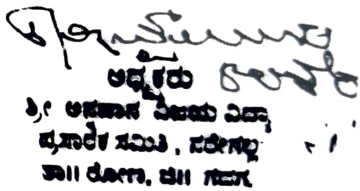 ಅಧ್ಯಕ್ಷರು
ಶ್ರೀ ಅನ್ನದಾನ ವಿಜಯ ವಿದ್ಯಾ
ಪ್ರಸಾರಕ ಸಮಿತಿ, ನರೇಗಲ್ಲ
ತಾ|| ರೋಣ, ಜಿ|| ಗದಗ